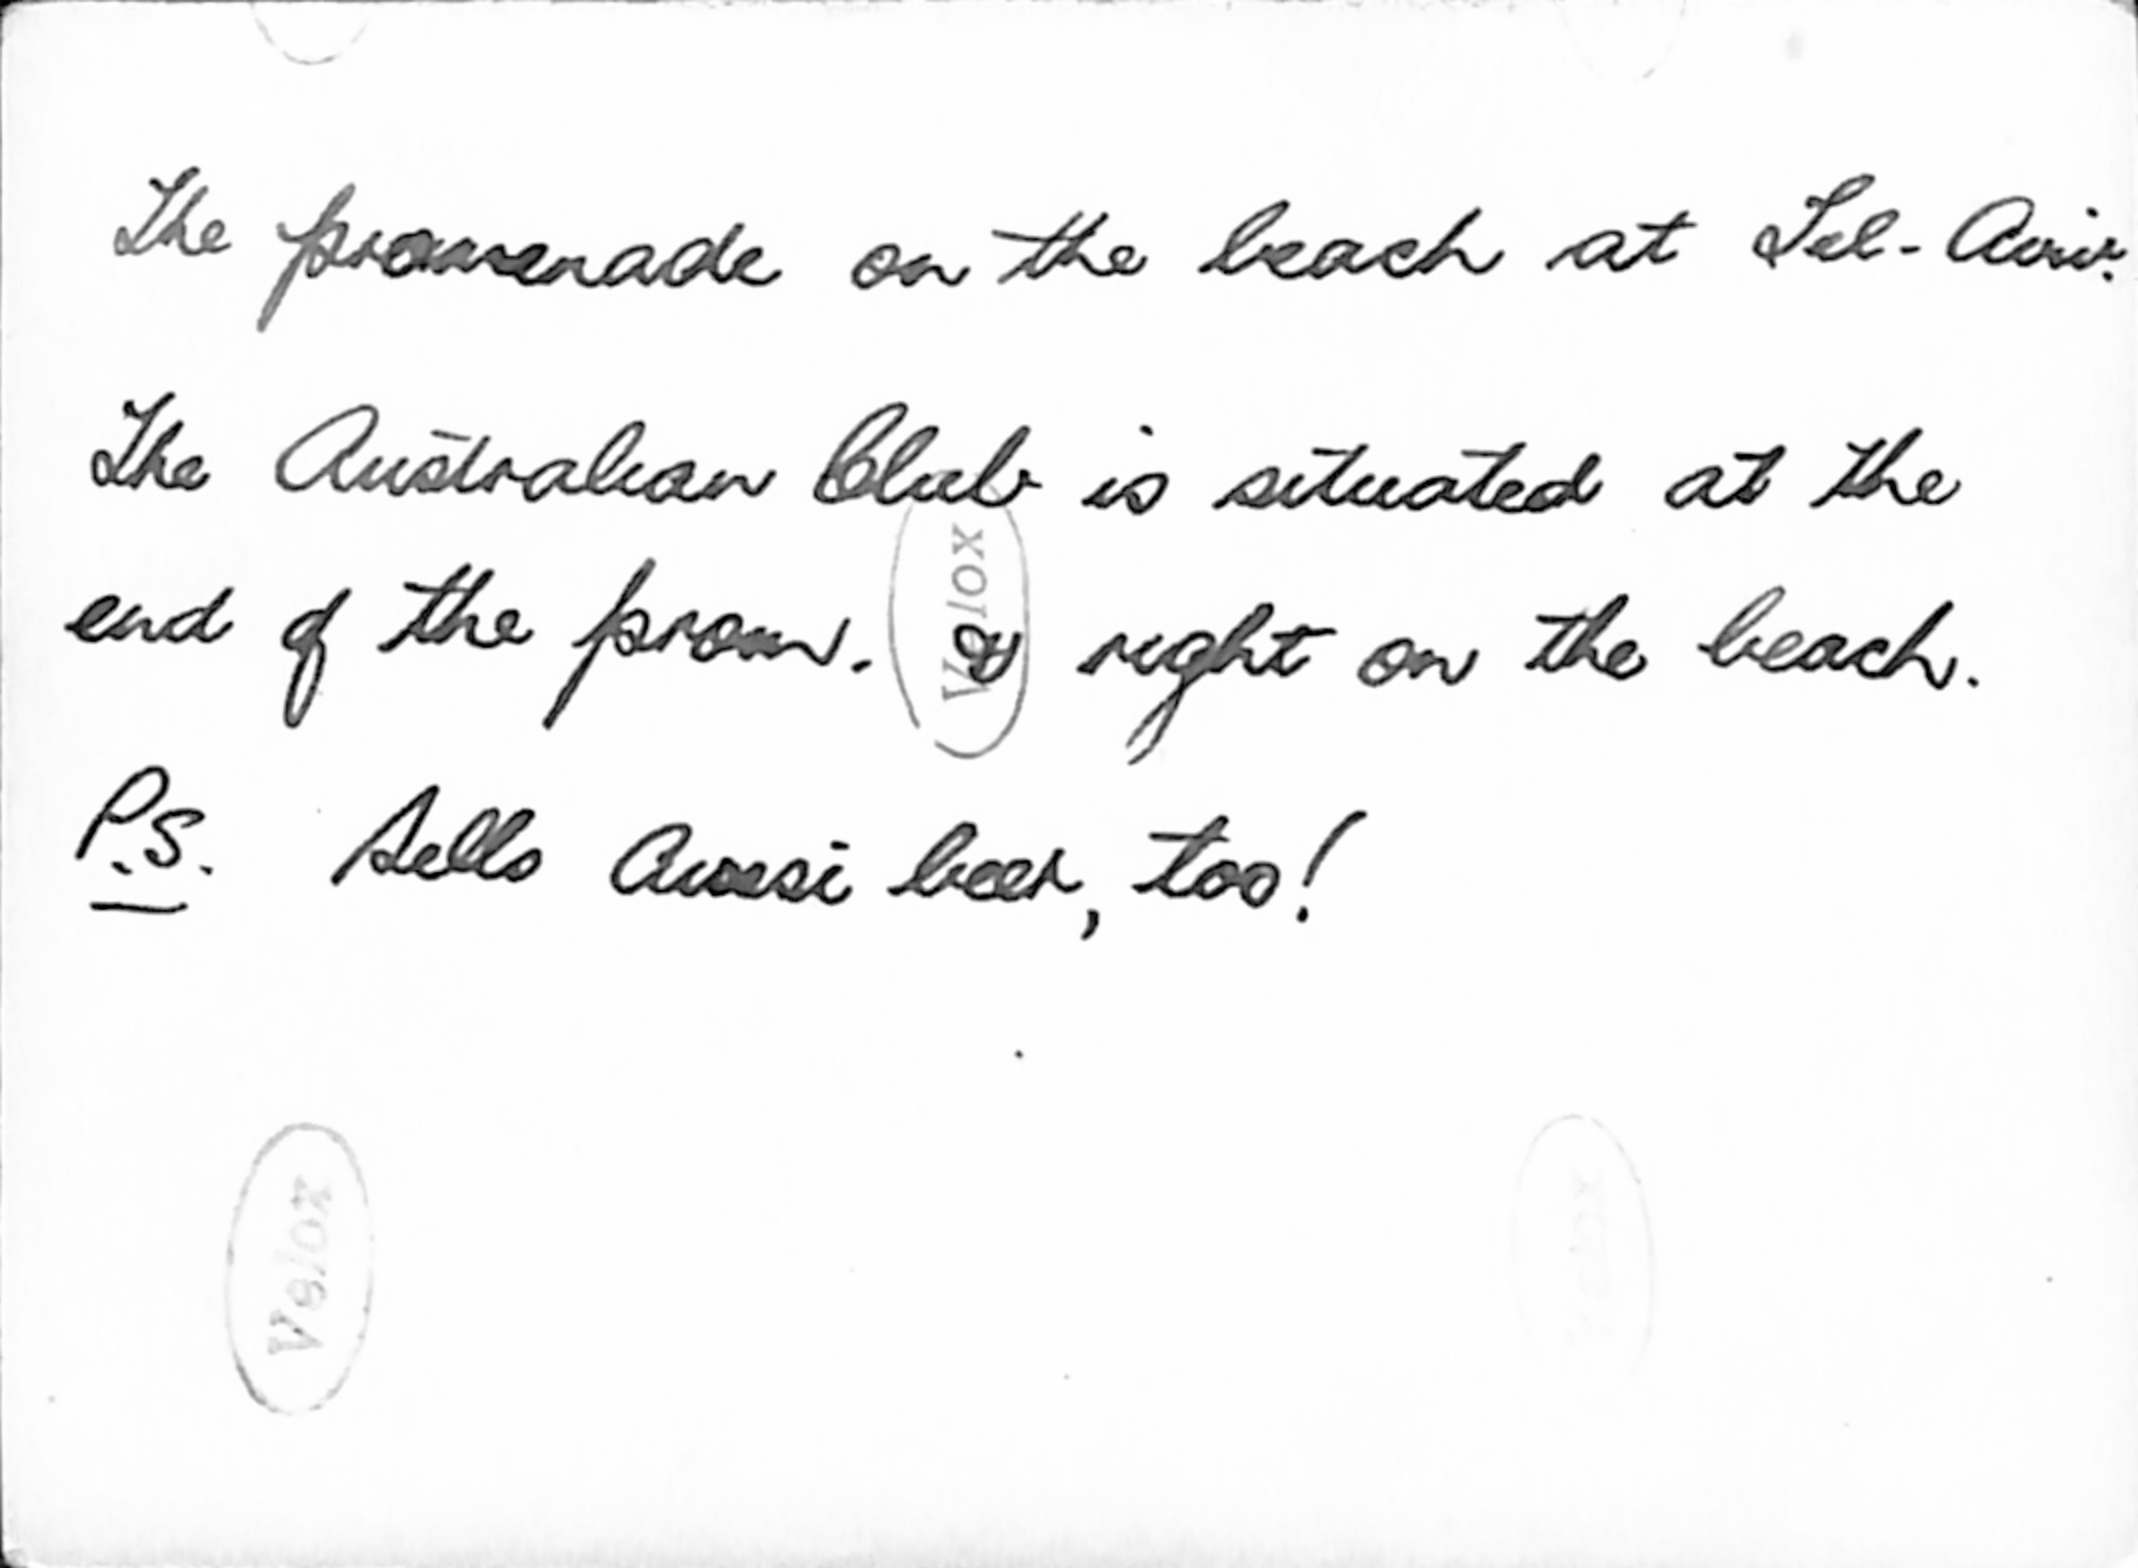 The promenade on the beach at Tel-Aviv.
The Australian Club is situated at the
end of the prom. & right on the beach.
P.S. Sells Aussi beer, too!
Velox
Velox
Velox